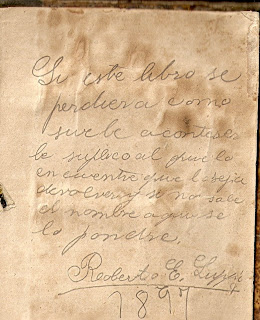 Si este libro se
perdiera como
suele acontecer
le suplico al que lo
encuentre que lo sepa
devolver y si no sabe
el nombre aqui se
lo pondre.
Roberto E.
1897